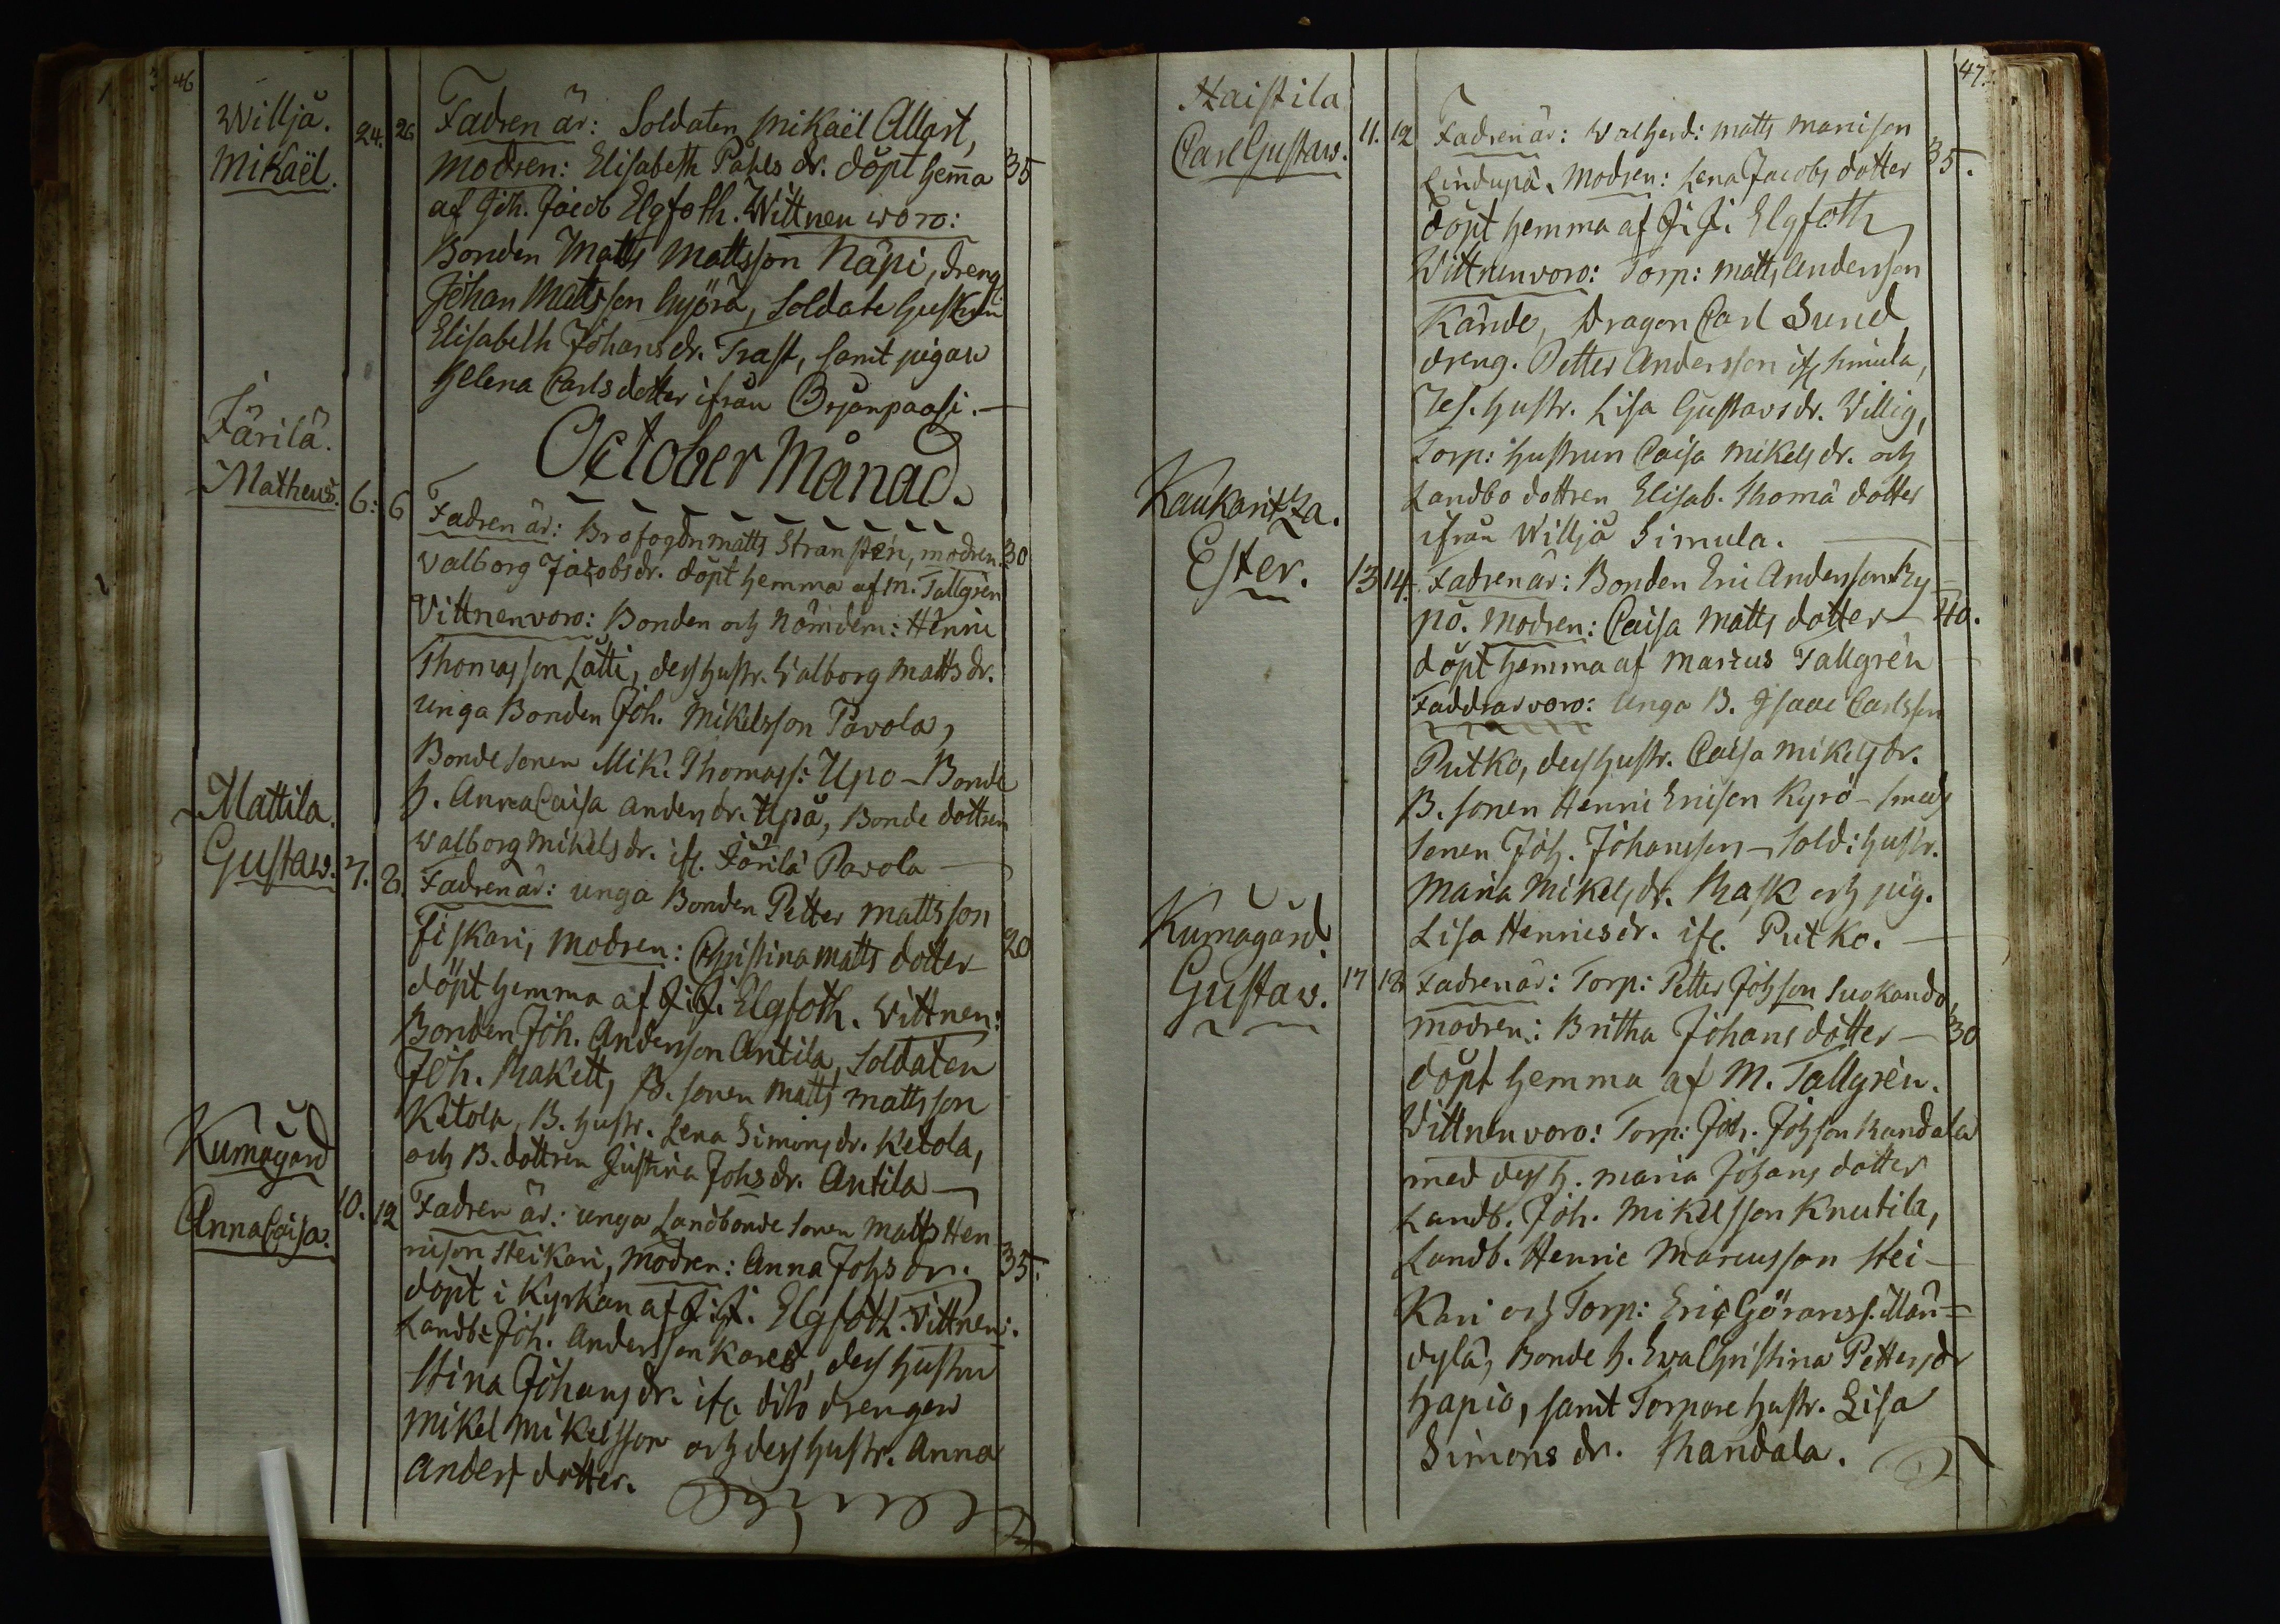 46
Willjä.
Mikaël.
24. 26
Fadren är: Soldaten Mikaël Allart,
modren: Elisabeth Påhls dr. döpt hemma 35
af Joh. Jacob Elgfoth. Wittnen woro:
Bonden Matts Mattsson Näpi, dreng.
Johan Mattsson Äyörä, Soldate hustrun
Elisabeth Johansdr. Trast, samt pigan
Helena Carlsdotter ifrån Börjanpaasi.
October Månad.
Färilä.
Matheus. 6: 6
Fadren är: Brofogdn matts Stransten, modren. 30
Valborg Jacobsdr. döpt hemma af M. Tallgrèn
Vittnen voro: Bonden och Nämdem: Henric
Thomasson Lätti, dess hustr. Valborg Mattsdr.
unga Bonden Joh. Mikelsson Pavola,
Bondesonen Mik. Thomass: Upo - Bonde
h. Anna Caisa Andersdr. Upå, Bonde dottren
Walborg Mikelsdr. ifr. Färilä Pavola
Mattila.
Gustaw. 7. 8.
Fadren är: unga Bonden Petter Mattsson
Fiskari, Modren: Christina Matts dotter 20
döpt hemma af J. J. Elgfoth. Vittnen:
Bonden Joh. Andersson Antila, Soldaten
Joh. Rakett, B. sonen Matts Mattsson
Ketola, B. hustr. Lena Simonsdr. Ketola,
och B. dottren Justina Johsdr. Antila
Kumogård
Anna Caisa. 10. 12
Fadren är: unga Landbonde sonen Matts Hen
ricson Steikari, Modren: Anna Johsdr. 35.
döpt i Kyrkan af J. J. Elgfoth. Vittnen:
Landb: Joh. Andersson Kares, dess hustru
Stina Johansdr. ifr. dito drengen
Mikel Mikelsson och dess hustr. Anna
Anders dotter.
47.
Haistila
Carl Gustaw. 11. 12
Fadren är: matts
Lindupå. Modren: Lena Jacobs dotter 35.
döpt hemma af J. J. Elgfoth
Wittnen voro: Torp: Matts Andersson
Kånde, Dragon Carl Sund
dreng. Petter Andersson ifr. Simula,
Ref. hustr. Lisa Gustavsdr. Villig,
Torp: hustrun Caisa Mikelsdr. och
Landbo dottren Elisab. Thomä dotter
ifrån Willjä Simula.
Kaukaritza.
Ester. 13 14.
Fadren är: Bonden Eric Andersson Ky-
rö. Modren: Caisa Matts dotter 40.
döpt hemma af Marcus Tallgrèn
Faddrar voro: Unga B. Isaac Carlsson
Putko, dess hustr. Caisa Mikelsdr.
B. sonen Henric Ericson Kyrö - smeds
sonen Joh. Johansson - Sold: hustr.
Maria Mikelsdr. Rask och pig.
Lisa Henricsdr. ifr. Putko.
Kumogård.
Gustaw. 17 18
Fadren är: Torp: Petter Johson Suokando,
modren: Britha Johansdotter 30
döpt hemma af M. Tallgrèn.
Vittnen voro: Torp: Joh. Johson Randala
med dess h. Maria Johans dotter
Landb. Joh. Mikelsson Knutila,
Landb. Henric Marcusson Stei-
kari och Torp: Eric Göranss. Män=
dylä, Bonde h. Ewa Christina Pettersdr
Hapio, samt Torpare hustr. Lisa
Simons dr. Randala.